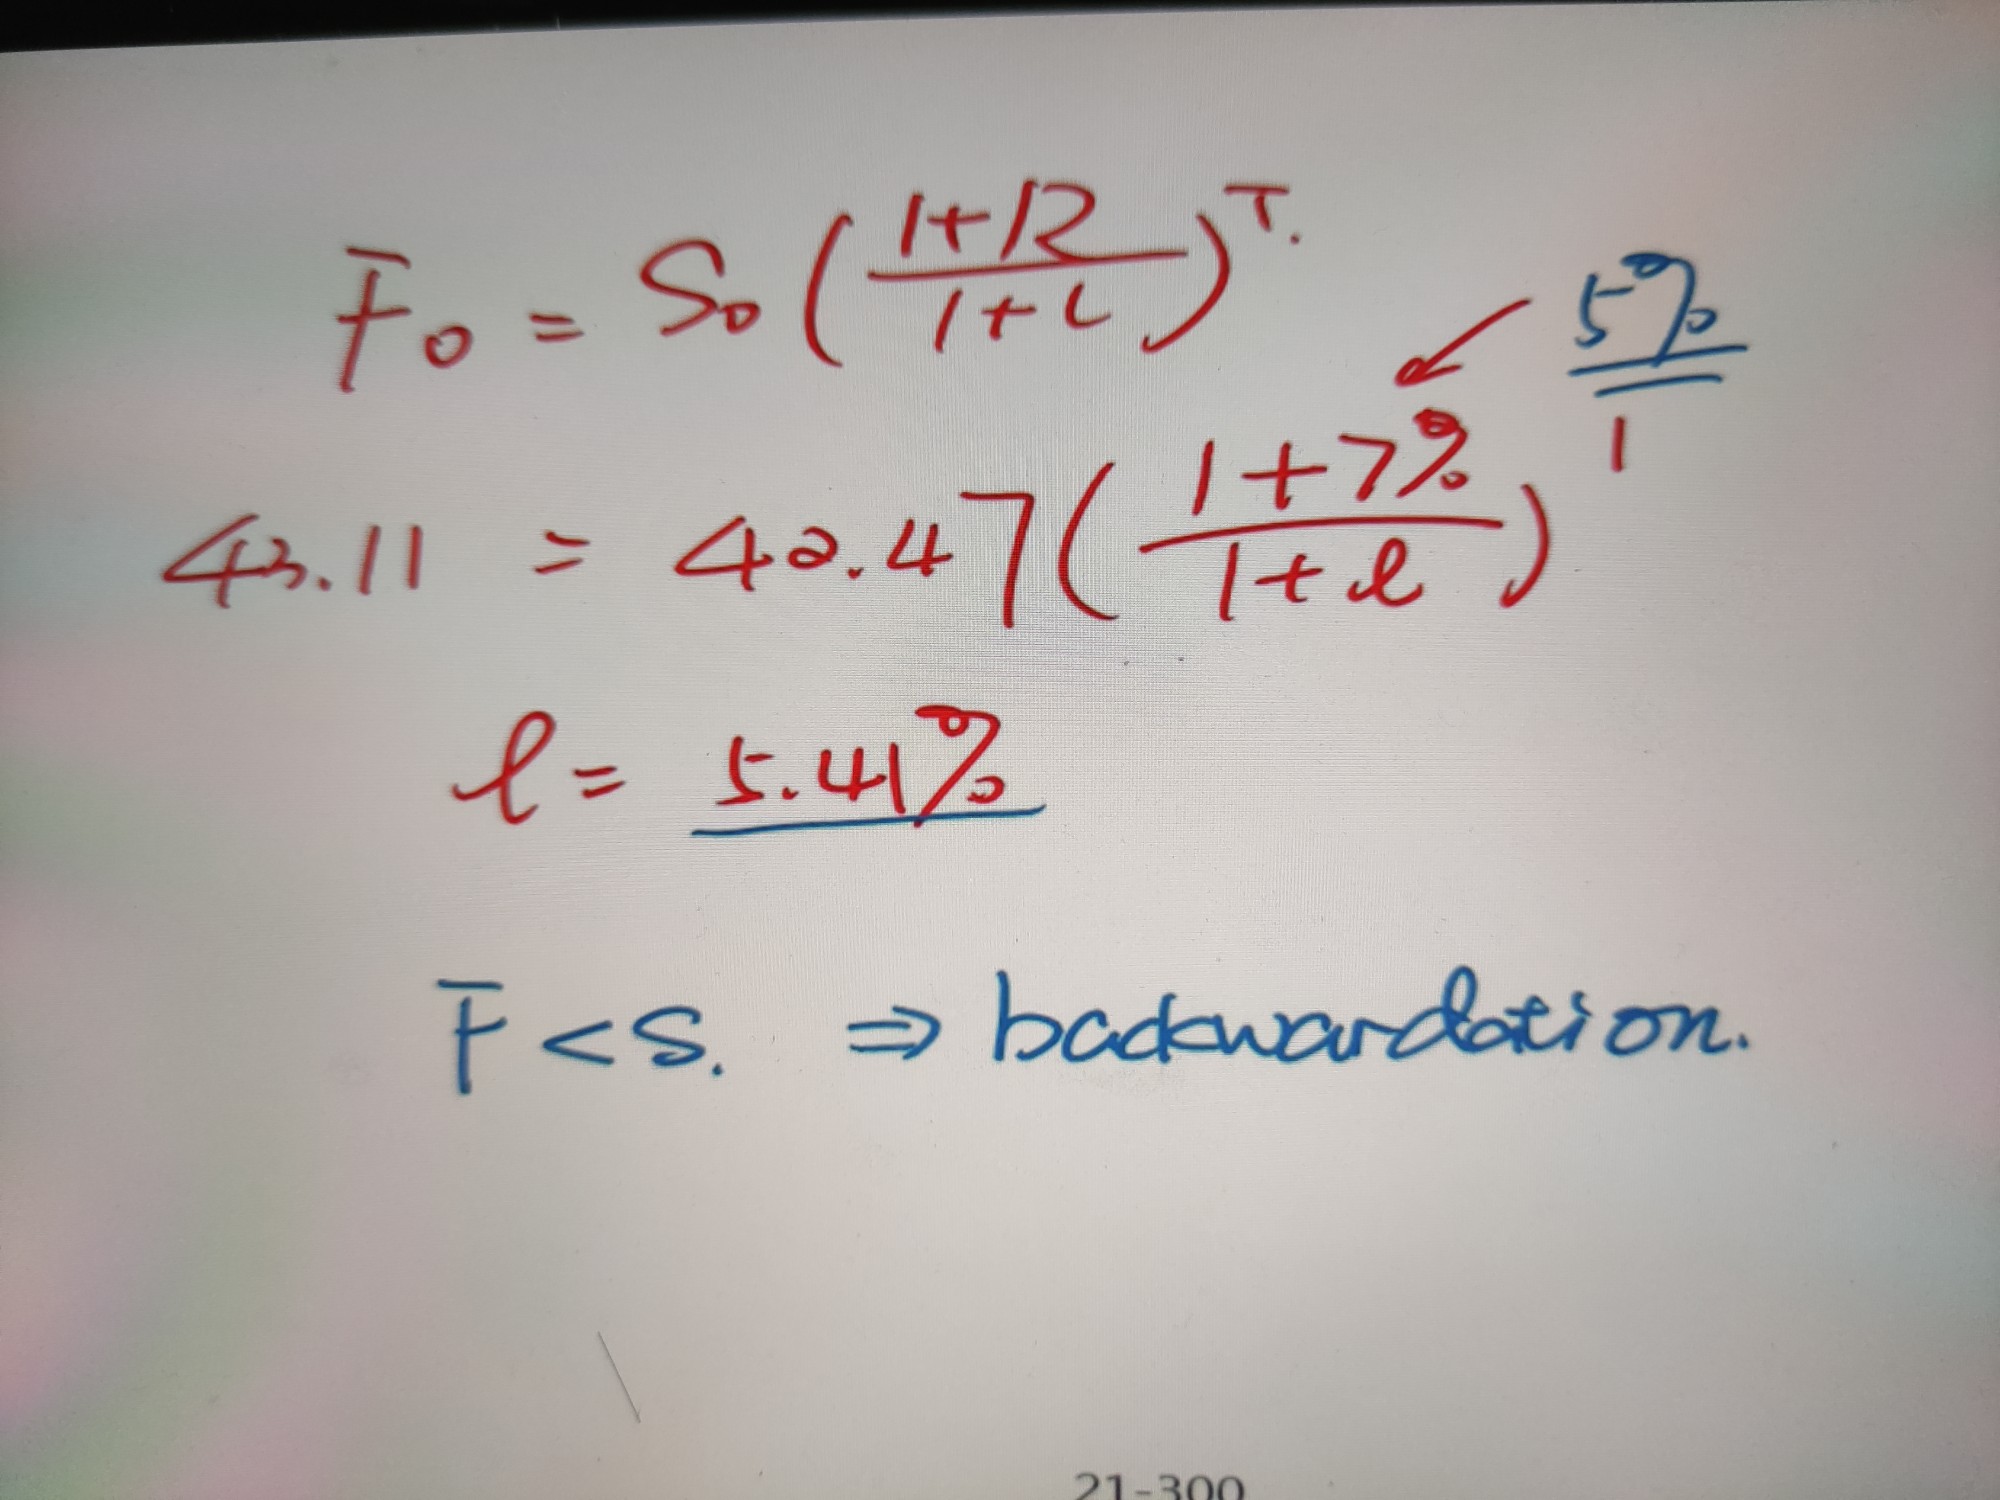 F₀ = S₀ ( (1+R)/(1+l) )ᵀ.
5%
43.11 = 42.47 ( (1+7%)/(1+l) ) 1
l = 5.41%
F < S. ⇒ backwardation.
21-300